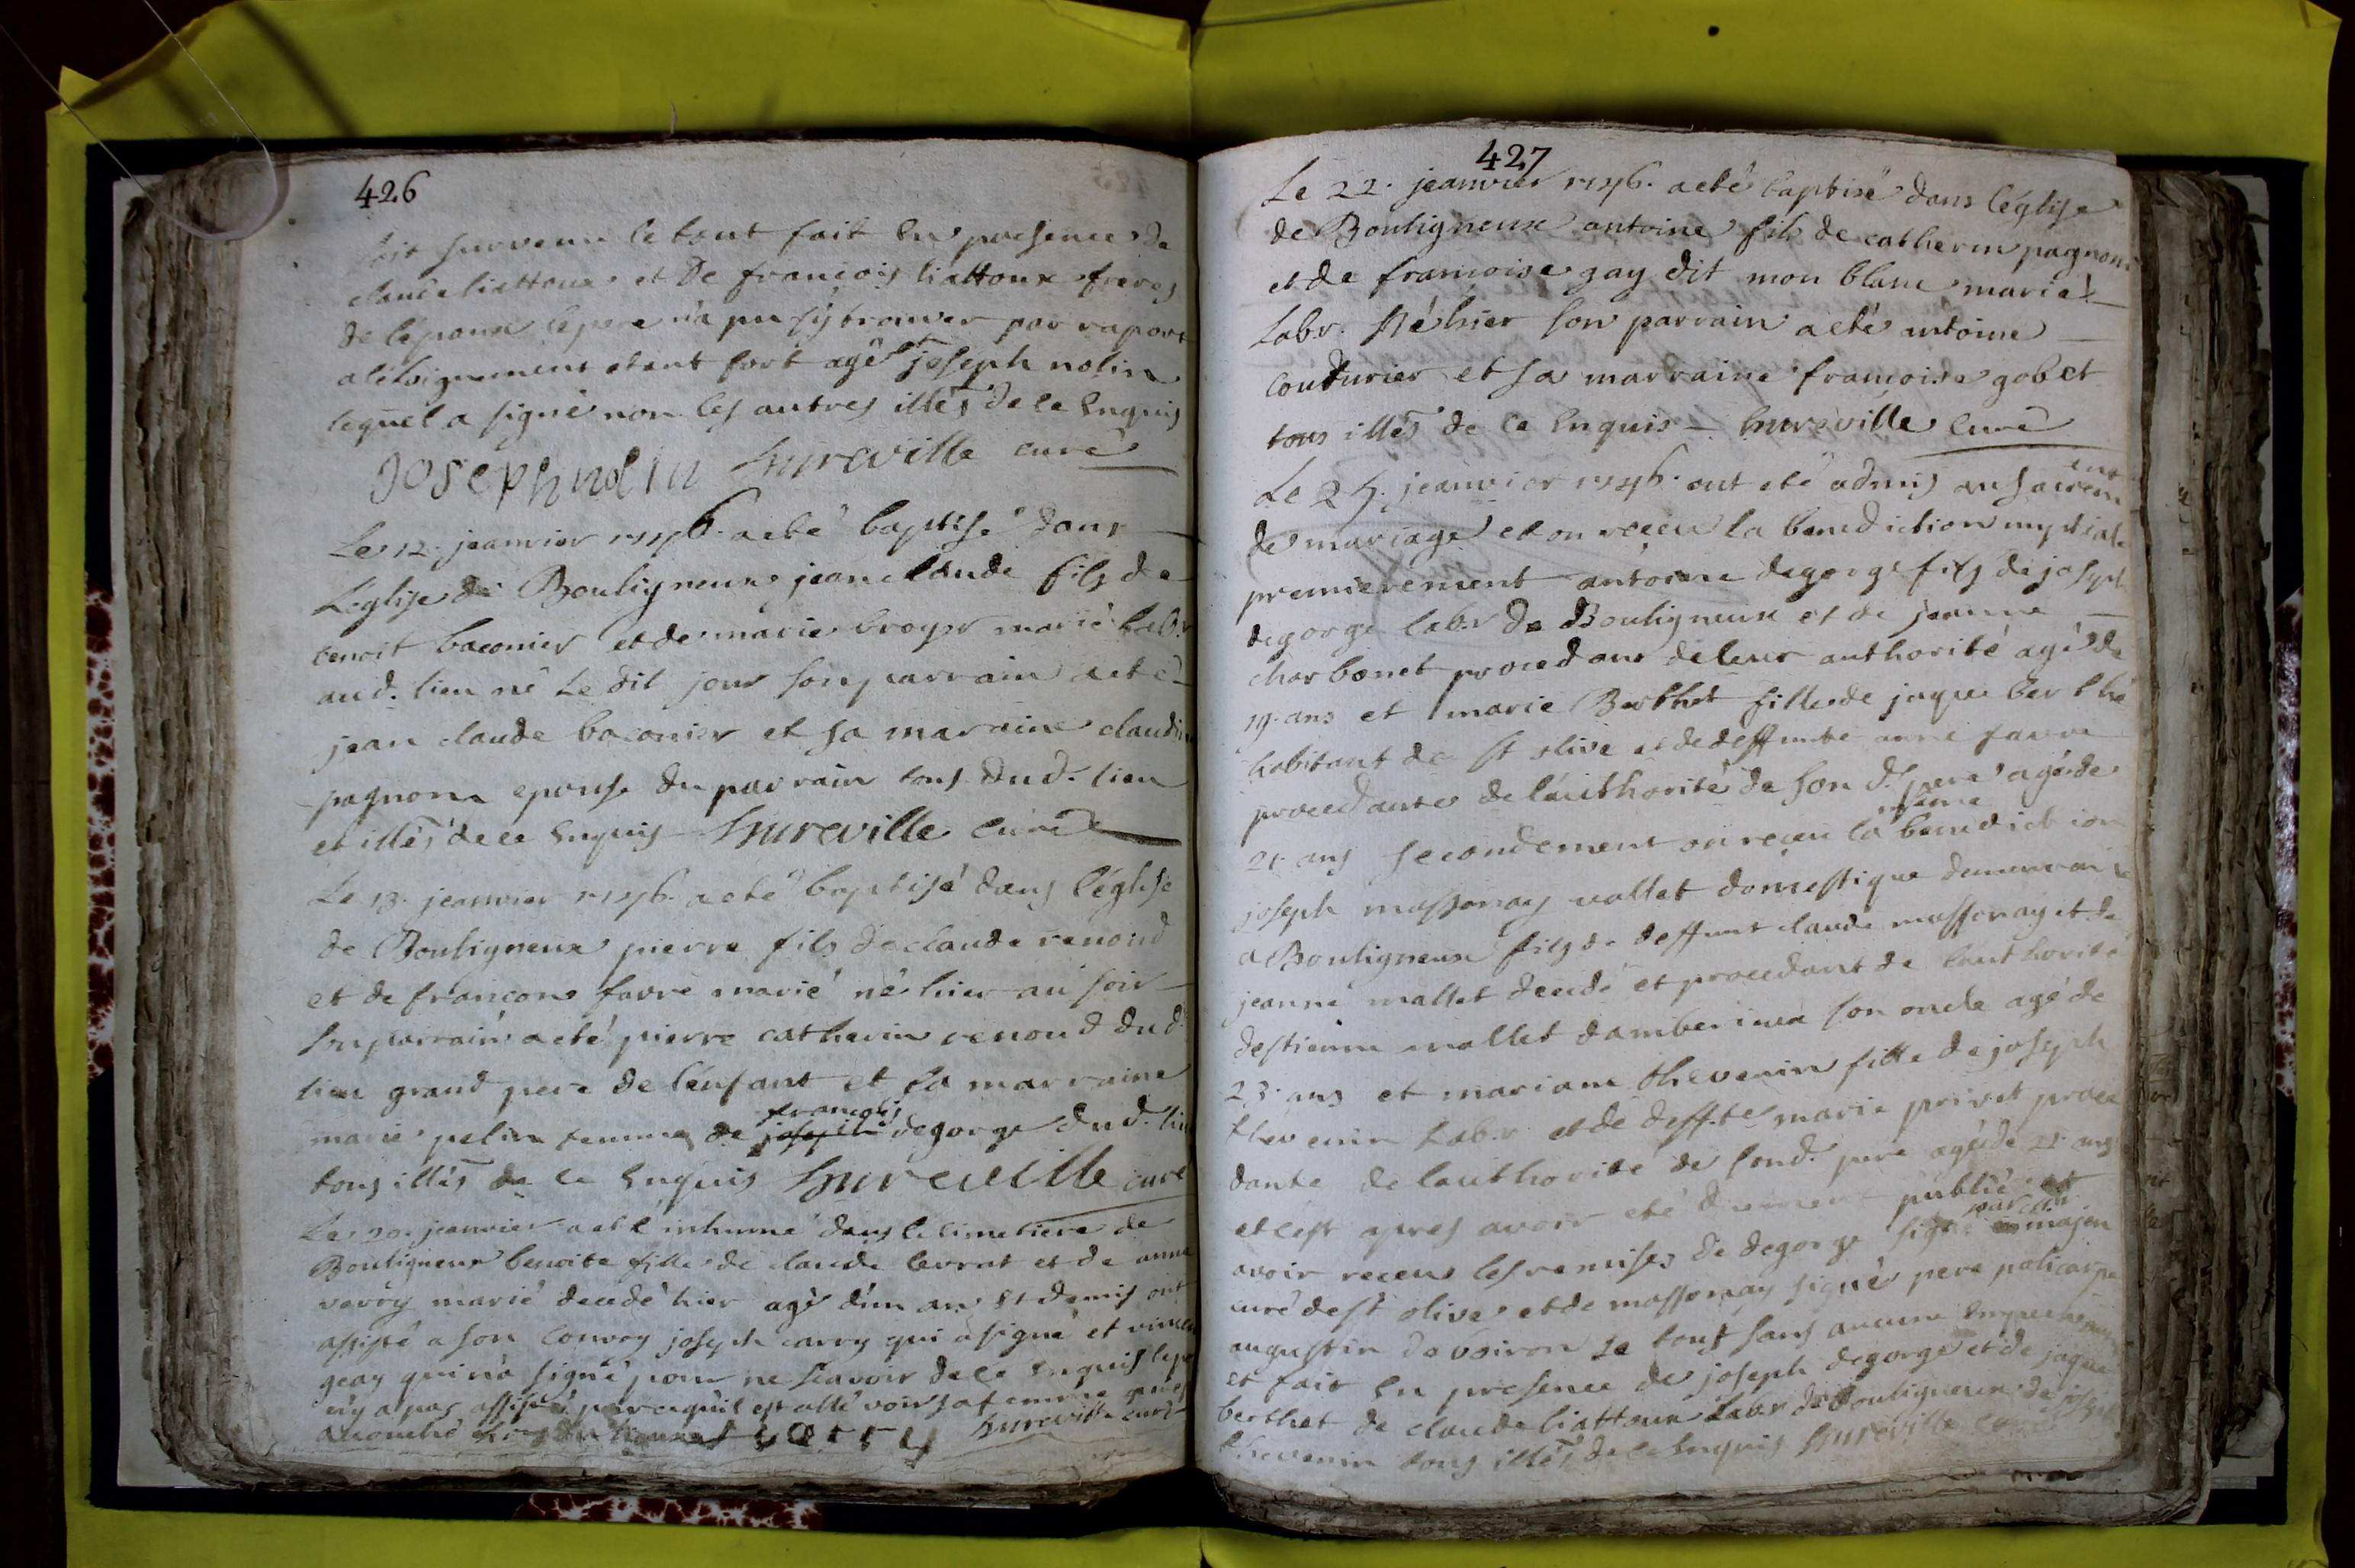 426
soit survenu le tout fait en presence de
claude liattoux et De françois liattoux freres
de lépoux lepere n'a pu sÿ trouver par raport
a léloignement etant fort agé joseph nolin
lequel a signé non les autres illés de ce Enquis
Joseph nolin hureville curé
Le 12. jeanvier 1746. a eté baptisé dans
Leglise de Bouligneux jean claude fils de
benoit baconier et de marie broyer marié Labr
aud. lieu né Le dit jour son parrain a eté
jean claude baconier et sa marraine claudine
pagnon epouse du parrain tous dud. lieu
et illés de ce Enquis hureville curé
Le 13. jeanvier 1746. a eté baptisé dans l'église
de Bouligneux pierre fils de claude renoud
et de françoise favre marié né hier au soir
son parrain a eté pierre catherin renoud dud.
lieu grand pere de l'enfant et la marraine
marie pelin femme de joseph françois degorge dud. lieu
tous illés de ce Enquis hureville curé
Le 20. jeanvier a eté inhumé dans le cimetiere de
Bouligneux benoite fille de claude levrat et de anne
varry marié decedé hier agé d'un an et demis ont
assisté a son convoy joseph carry qui a signé et
geay qui n'a signé pour ne scavoir de ce Enquis lepere
n'y a pas assisté parcequ'il est allé voir sa femme
accouché varry hureville curé
427
Le 22. jeanvier 1746. a eté baptisé dans l'église
de Bouligneux antoine fils de catherin pagnon
et de françoise gay dit mon blanc marié
Labr. Né hier son parrain a eté antoine
couturier et sa marraine françoise gobet
tous illés de ce Enquis hureville curé
Le 25. jeanvier 1746. ont eté admis au sacrement
de mariage et on receu la benediction nuptiale
premierement antoine degorge fils de joseph
degorge labr. de Bouligneux et de jeanne
charbonet procedant de leur authorité agé de
19. ans et marie Berthet fille de jaque berthe
habitant de st olive et de deffunte anne favre
procedante de l'authorité de son d. pere agée de
21. ans secondement on receu la même benediction
joseph massonay vallet domestique demeurant
a Bouligneux fils de deffunt claude massonay et de
jeanne mallet decedé et procedant de l'authorité
destienne mallet son oncle agé de
23. ans et mariane thevenin fille de joseph
thevenin Labr. et de deff.te marie privet proce
dante de lauthorité de sond. pere agée de 22. ans
et cest apres avoir eté duement publié et
avoir receu les remises de degorge signé par mr. majeu
curé de st olive et de massonay signé pere policarpe
augustin de voiron le tout sans aucun Empechement
et fait en presence de joseph degorge et de jaque
berthet de claude liattoux Labr. de Bouligneux de joseph
thevenin tous illés de ce Enquis hureville curé